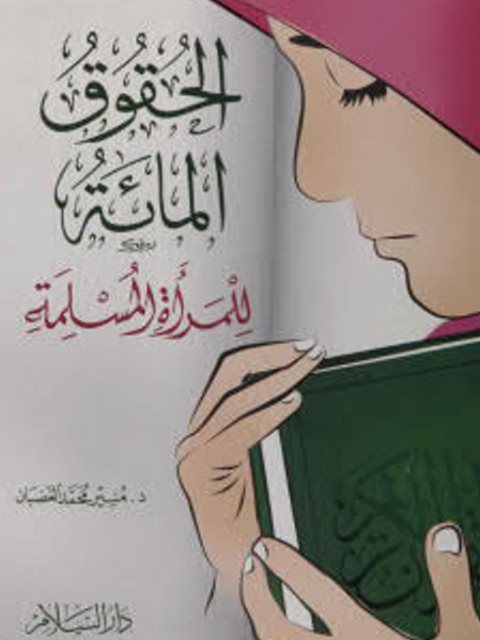 الحُقُوقُ
المائَةُ
لِلْمَرأَةِ المُسْلِمَةِ
د. مُنير مُحَمَّد الغضبان
دَارُ السَّلَام